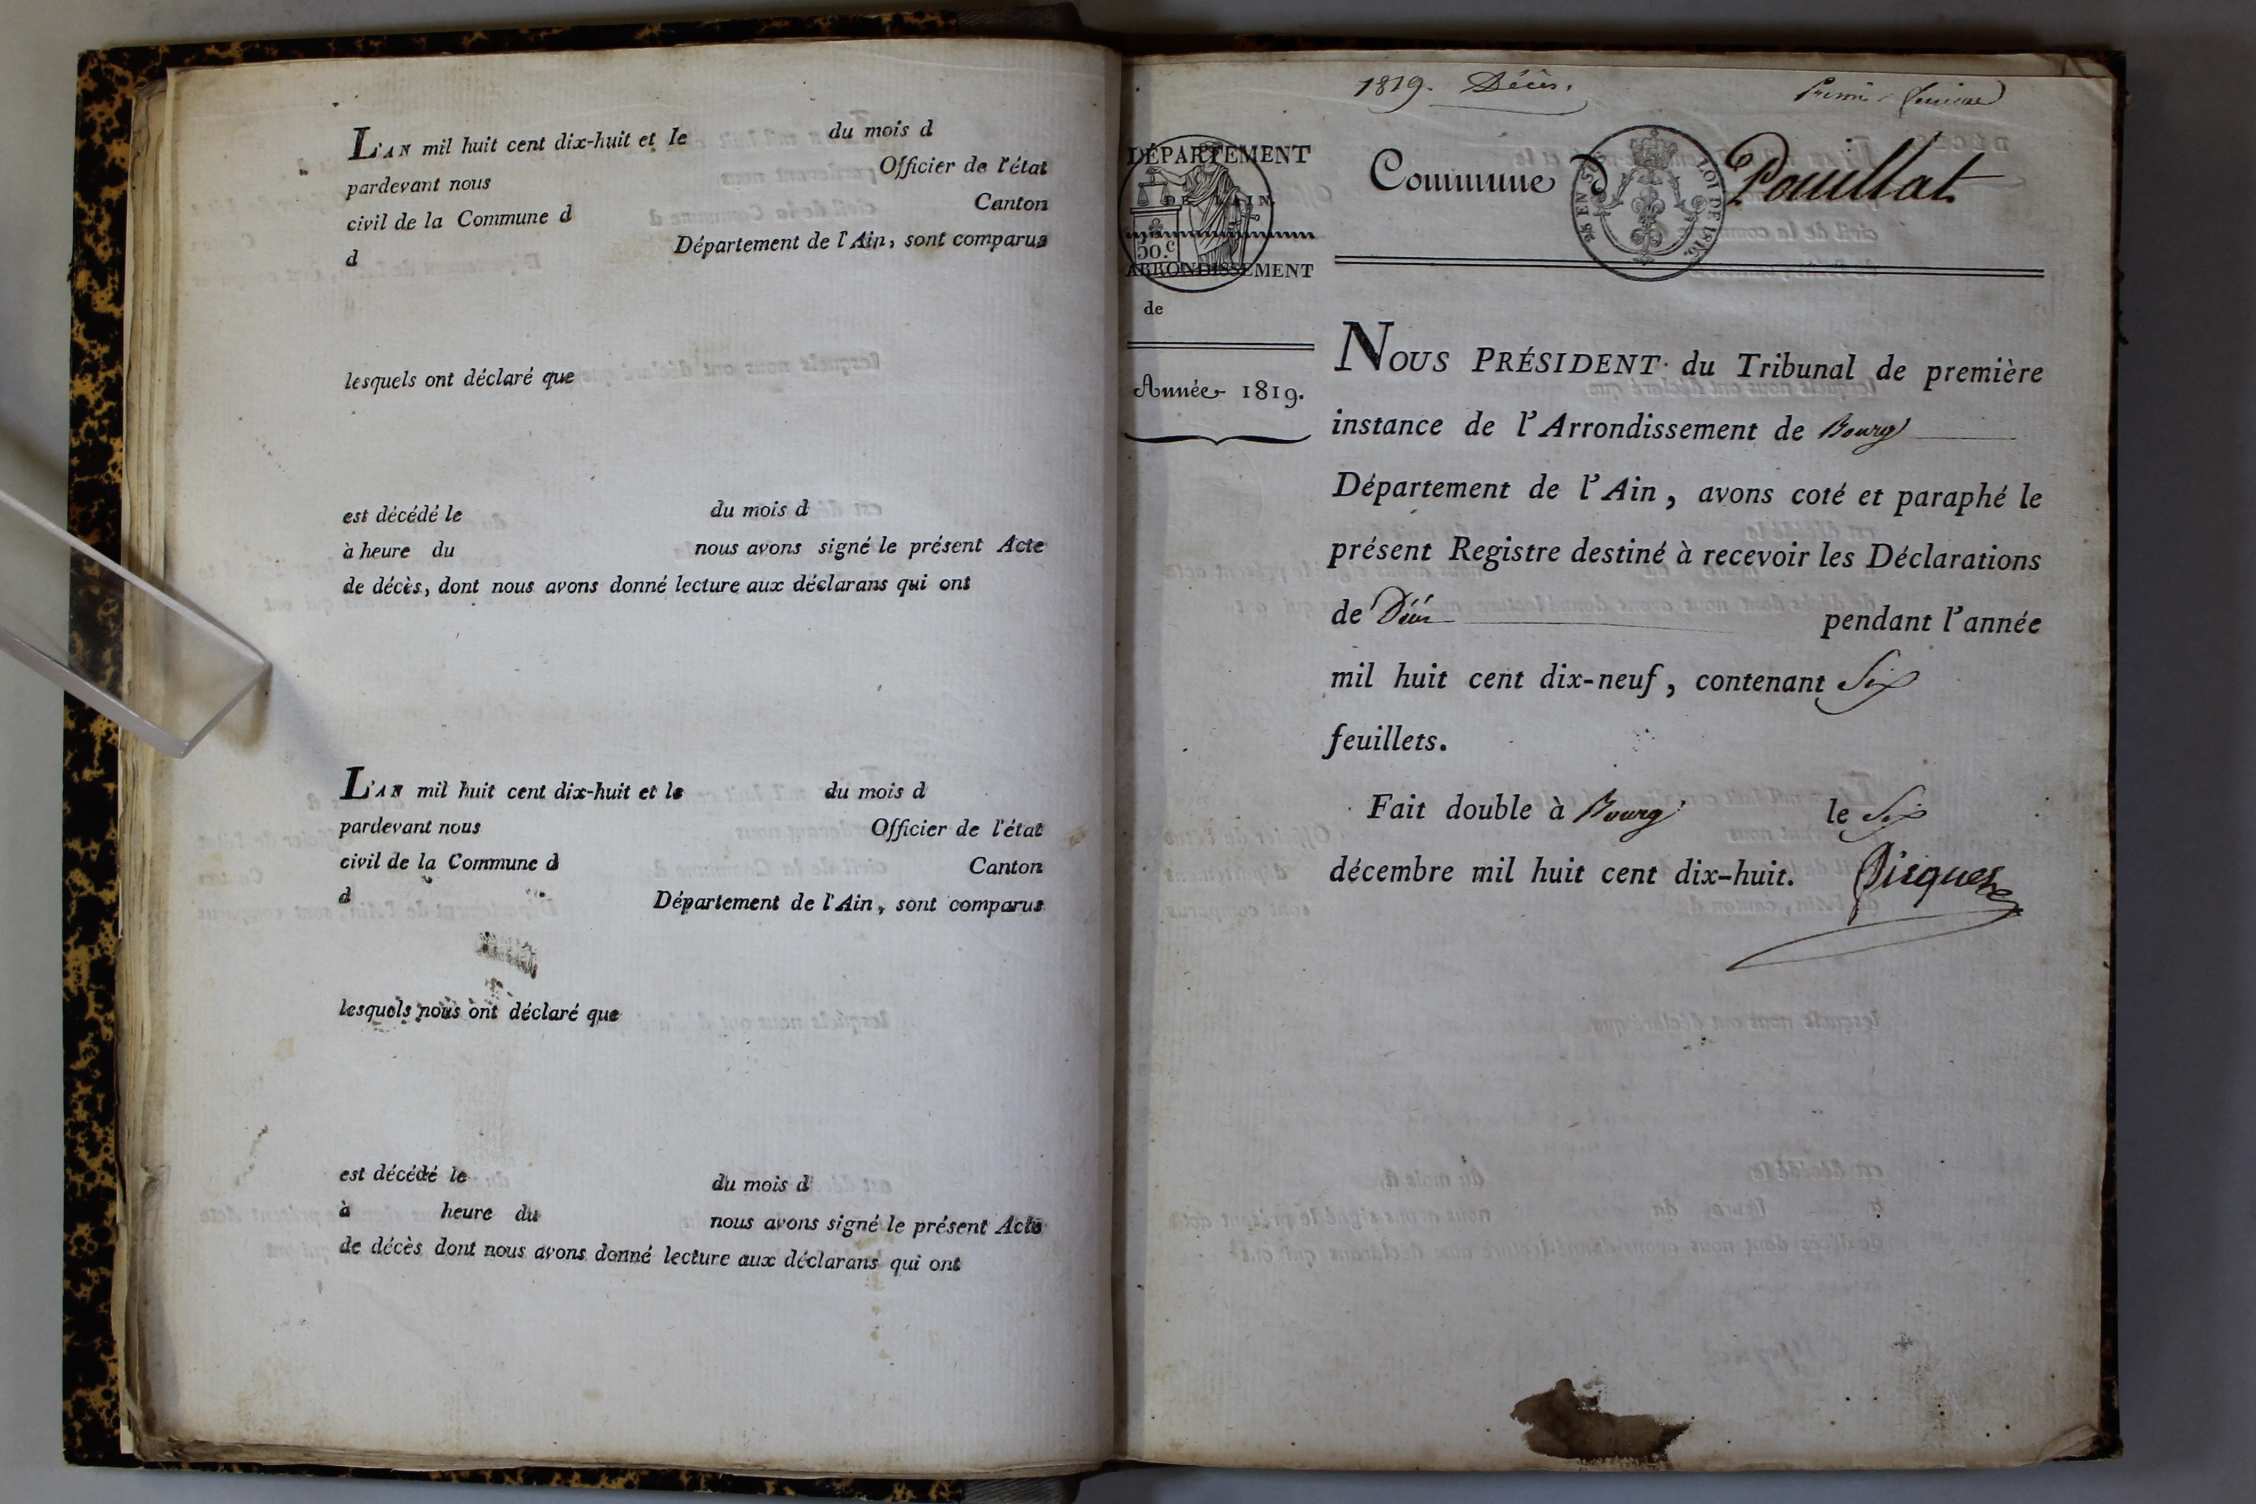 L'AN mil huit cent dix-huit et le du mois d
pardevant nous Officier de l'état
civil de la Commune d Canton
d Département de l'Ain, sont comparus
lesquels ont déclaré que
est décédé le du mois d
à heure du nous avons signé le présent Acte
de décès, dont nous avons donné lecture aux déclarans qui ont
L'AN mil huit cent dix-huit et le du mois d
pardevant nous Officier de l'état
civil de la Commune d Canton
d Département de l'Ain, sont comparus
lesquels nous ont déclaré que
est décédé le du mois d
à heure du nous avons signé le présent Acte
de décès dont nous avons donné lecture aux déclarans qui ont
1819. Décès.
DÉPARTEMENT
DE L'AIN.
50.c
ARRONDISSEMENT
de
Année 1819.
Commune d Pouillat
LOI DE 1816.
NOUS PRÉSIDENT du Tribunal de première
instance de l'Arrondissement de Bourg
Département de l'Ain, avons coté et paraphé le
présent Registre destiné à recevoir les Déclarations
de Décès pendant l'année
mil huit cent dix-neuf, contenant Six
feuillets.
Fait double à Bourg le Six
décembre mil huit cent dix-huit.